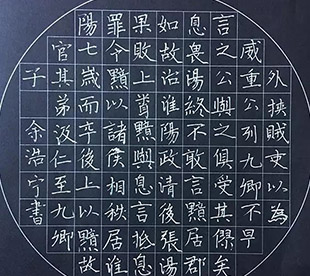 外挾賊吏以為
威重公列九卿不早
言之公與之俱受其僇矣
息畏湯終不敢言黯居郡
如故治淮陽政清後張湯
果敗上聞黯與息言抵息
罪令黯以諸侯相秩居淮
陽七歲而卒後上以黯故
官其弟汲仁至九卿
子 余浩宁書